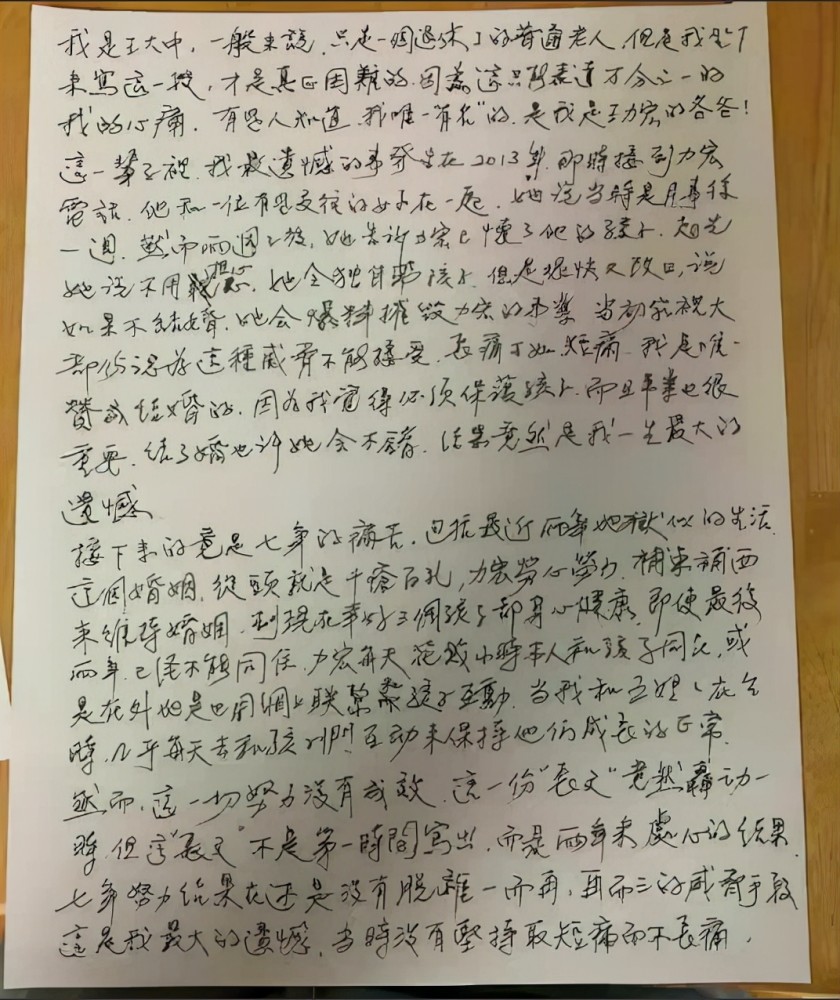 我是王大中，一般來說，只是一個退休了的普通老人，但是我坐下
來寫這一段，才是真正困難的，因為這只能表達万分之一的
我的心痛．有些人知道，我唯一"有名"的，是我是王力宏的爸爸！
這一輩子裡，我最遺憾的事發生在2013年，那時接到力宏
電話，他和一位有過交往的女子在一起．她說當時是月事後
一週，然而兩週之後，她告訴力宏已懷了他的孩子．起先
她说不用擔心，她会独自帶孩子．但是很快又改口，说
如果不結婚，她会爆料摧毀力宏的事業．当初家裡大
都仍認為這種威脅不能接受．長痛不如短痛．我是唯一
贊成結婚的．因為我覺得必須保護孩子．而且事業也很
重要．結了婚也许她会不錯．結果竟然是我一生最大的
遺憾
接下來的竟是七年的痛苦．包括最近兩年地獄似的生活．
這個婚姻，從頭就是千瘡百孔，力宏勞心勞力，補東補西
來維持婚姻．到現在幸好三個孩子都身心健康．即使最後
兩年，已经不能同住．力宏每天花数小時本人和孩子同在，或
是在外地是也用網上联繫帶孩子互動．当我和王媽媽在台
時，几乎每天去和孩子們互动来保持他们成長的正常．
然而，這一切努力没有成效．這一份"長文"竟然轟动一
時，但這"長文"不是第一時間寫出，而是兩年来處心的结果．
七年努力结果在还是没有脱離一而再，再而三的威脅手段
這是我最大的遺憾，当時没有堅持取短痛而不長痛．